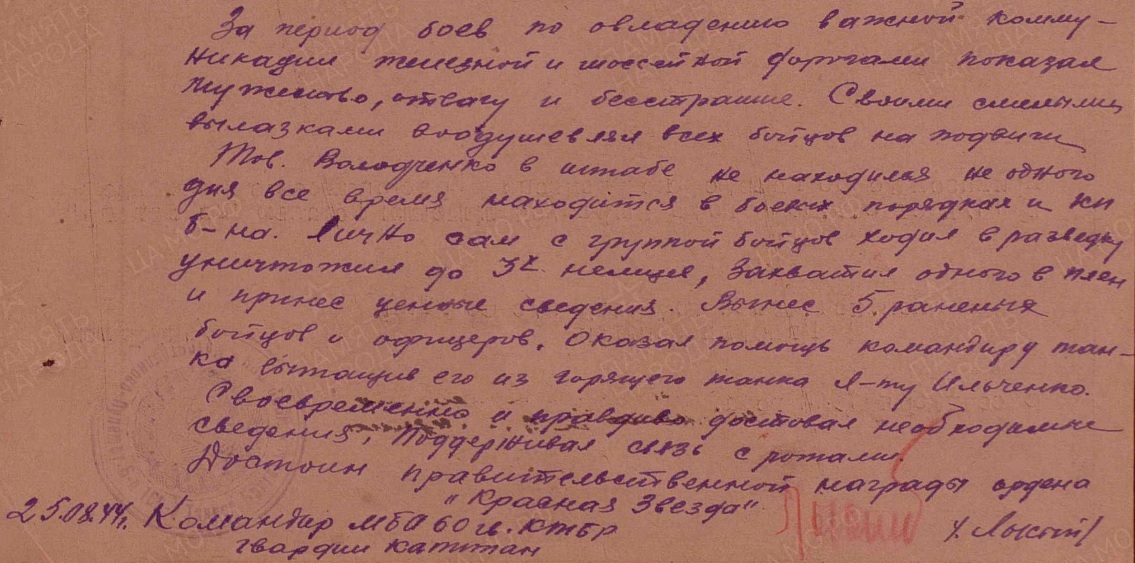 За период боев по овладению важной комму-
никации железной и шоссейной дорогами показал
мужество, отвагу и бесстрашие. Своими смелыми
вылазками воодушевлял всех бойцов на подвиги
Тов. Володченко в штабе не находился не одного
дня все время находится в боевых порядках и КП
б-на. Лично сам с группой бойцов ходил в разведку
уничтожил до 3х немцев, захватил одного в плен
и принес ценные сведения. Вынес 5 раненых
бойцов и офицеров. Оказал помощь командиру тан-
ка вытащив его из горящего танка л-ту Ильченко.
Своевременно и правдиво доставал необходимые
сведения, поддерживая связь с ротами.
Достоин правительственной награды ордена
"Красная Звезда".
25.08.44г. Командир МБА 60 гв. КТБР
гвардии капитан
ПАМЯТЬ НАРОДА